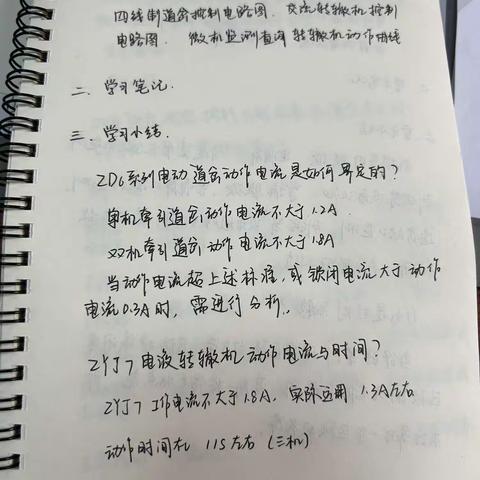 四线制道岔控制电路图. 交流转辙机控制
电路图. 微机监测查询转辙机动作曲线
二. 学习笔记.
三. 学习小结.
ZD6系列电动道岔动作电流是如何界定的?
单机牵引道岔动作电流不大于1.2A.
双机牵引道岔动作电流不大于1.8A
当动作电流超上述标准,或锁闭电流大于动作
电流0.3A时, 需进行分析.
ZYJ7电液转辙机动作电流与时间?
ZYJ7工作电流不大于1.8A, 实际运用1.3A左右
动作时间在 11S左右 (三机)